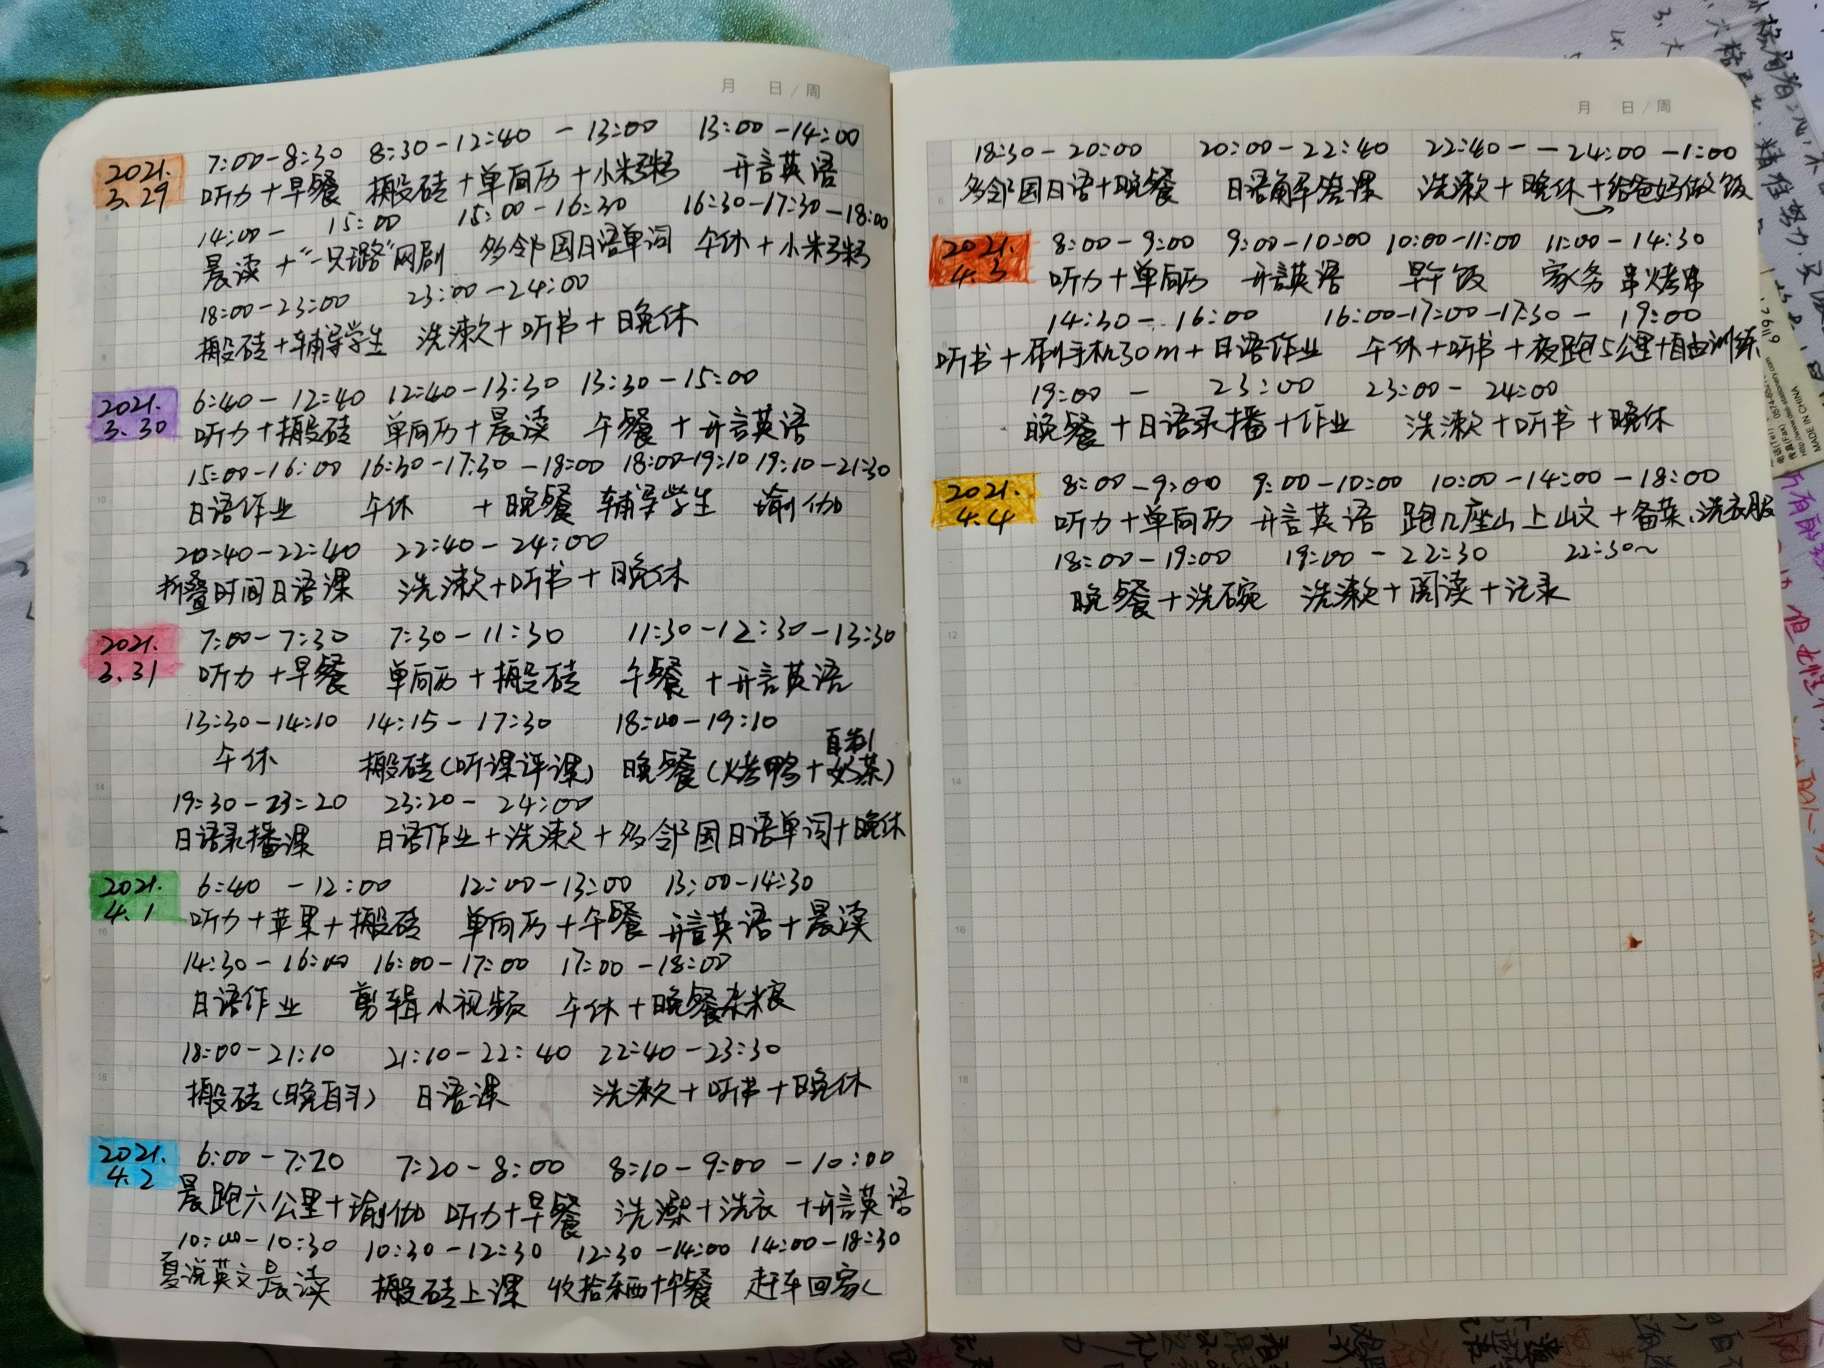 月 日/周
2021. 7:00-8:30 8:30-12:40 -13:00 13:00-14:00
3.29 听力+早餐 搬砖+单向历+小米粥 开言英语
14:00- 15:00 15:00-16:30 16:30-17:30-18:00
晨读+"一只璐"网剧 多邻国日语单词 午休+小米粥
18:00-23:00 23:00-24:00
搬砖+辅导学生 洗漱+听书+晚休
2021. 6:40-12:40 12:40-13:30 13:30-15:00
3.30 听力+搬砖 单向历+晨读 午餐+开言英语
15:00-16:00 16:30-17:30-18:00 18:00-19:10 19:10-21:30
日语作业 午休 +晚餐 辅导学生 瑜伽
20:40-22:40 22:40-24:00
折叠时间日语课 洗漱+听书+晚休
2021. 7:00-7:30 7:30-11:30 11:30-12:30-13:30
3.31 听力+早餐 单向历+搬砖 午餐+开言英语
13:30-14:10 14:15-17:30 18:00-19:10
午休 搬砖(听课评课) 晚餐(烤鸭+自制奶茶)
19:30-23:20 23:20-24:00
日语录播课 日语作业+洗漱+多邻国日语单词+晚休
2021. 6:40-12:00 12:00-13:00 13:00-14:30
4.1 听力+苹果+搬砖 单向历+午餐 开言英语+晨读
14:30-16:00 16:00-17:00 17:00-18:00
日语作业 剪辑小视频 午休+晚餐杂粮
18:00-21:10 21:10-22:40 22:40-23:30
搬砖(晚自习) 日语课 洗漱+听书+晚休
2021. 6:00-7:20 7:20-8:00 8:10-9:00-10:00
4.2 晨跑六公里+瑜伽 听力+早餐 洗澡+洗衣+开言英语
10:00-10:30 10:30-12:30 12:30-14:00 14:00-18:30
夏说英文晨读 搬砖上课 收拾东西+午餐 赶车回家
月 日/周
18:30-20:00 20:00-22:40 22:40--24:00-1:00
多邻国日语+晚餐 日语解答课 洗漱+晚休+给爸妈做饭
2021. 8:00-9:00 9:00-10:00 10:00-11:00 11:00-14:30
4.3 听力+单向历 开言英语 早午饭 家务 串烤串
14:30-16:00 16:00-17:00-17:30-19:00
听书+刷手机30m+日语作业 午休+听书+夜跑5公里+自由训练
19:00 - 23:00 23:00-24:00
晚餐+日语录播+作业 洗漱+听书+晚休
2021. 8:00-9:00 9:00-10:00 10:00-14:00-18:00
4.4 听力+单向历 开言英语 跑几座山上山坟+备菜、洗衣服
18:00-19:00 19:00-22:30 22:30~
晚餐+洗碗 洗漱+阅读+记录
10
12
14
16
18
12
14
16
18
MADE IN CHINA